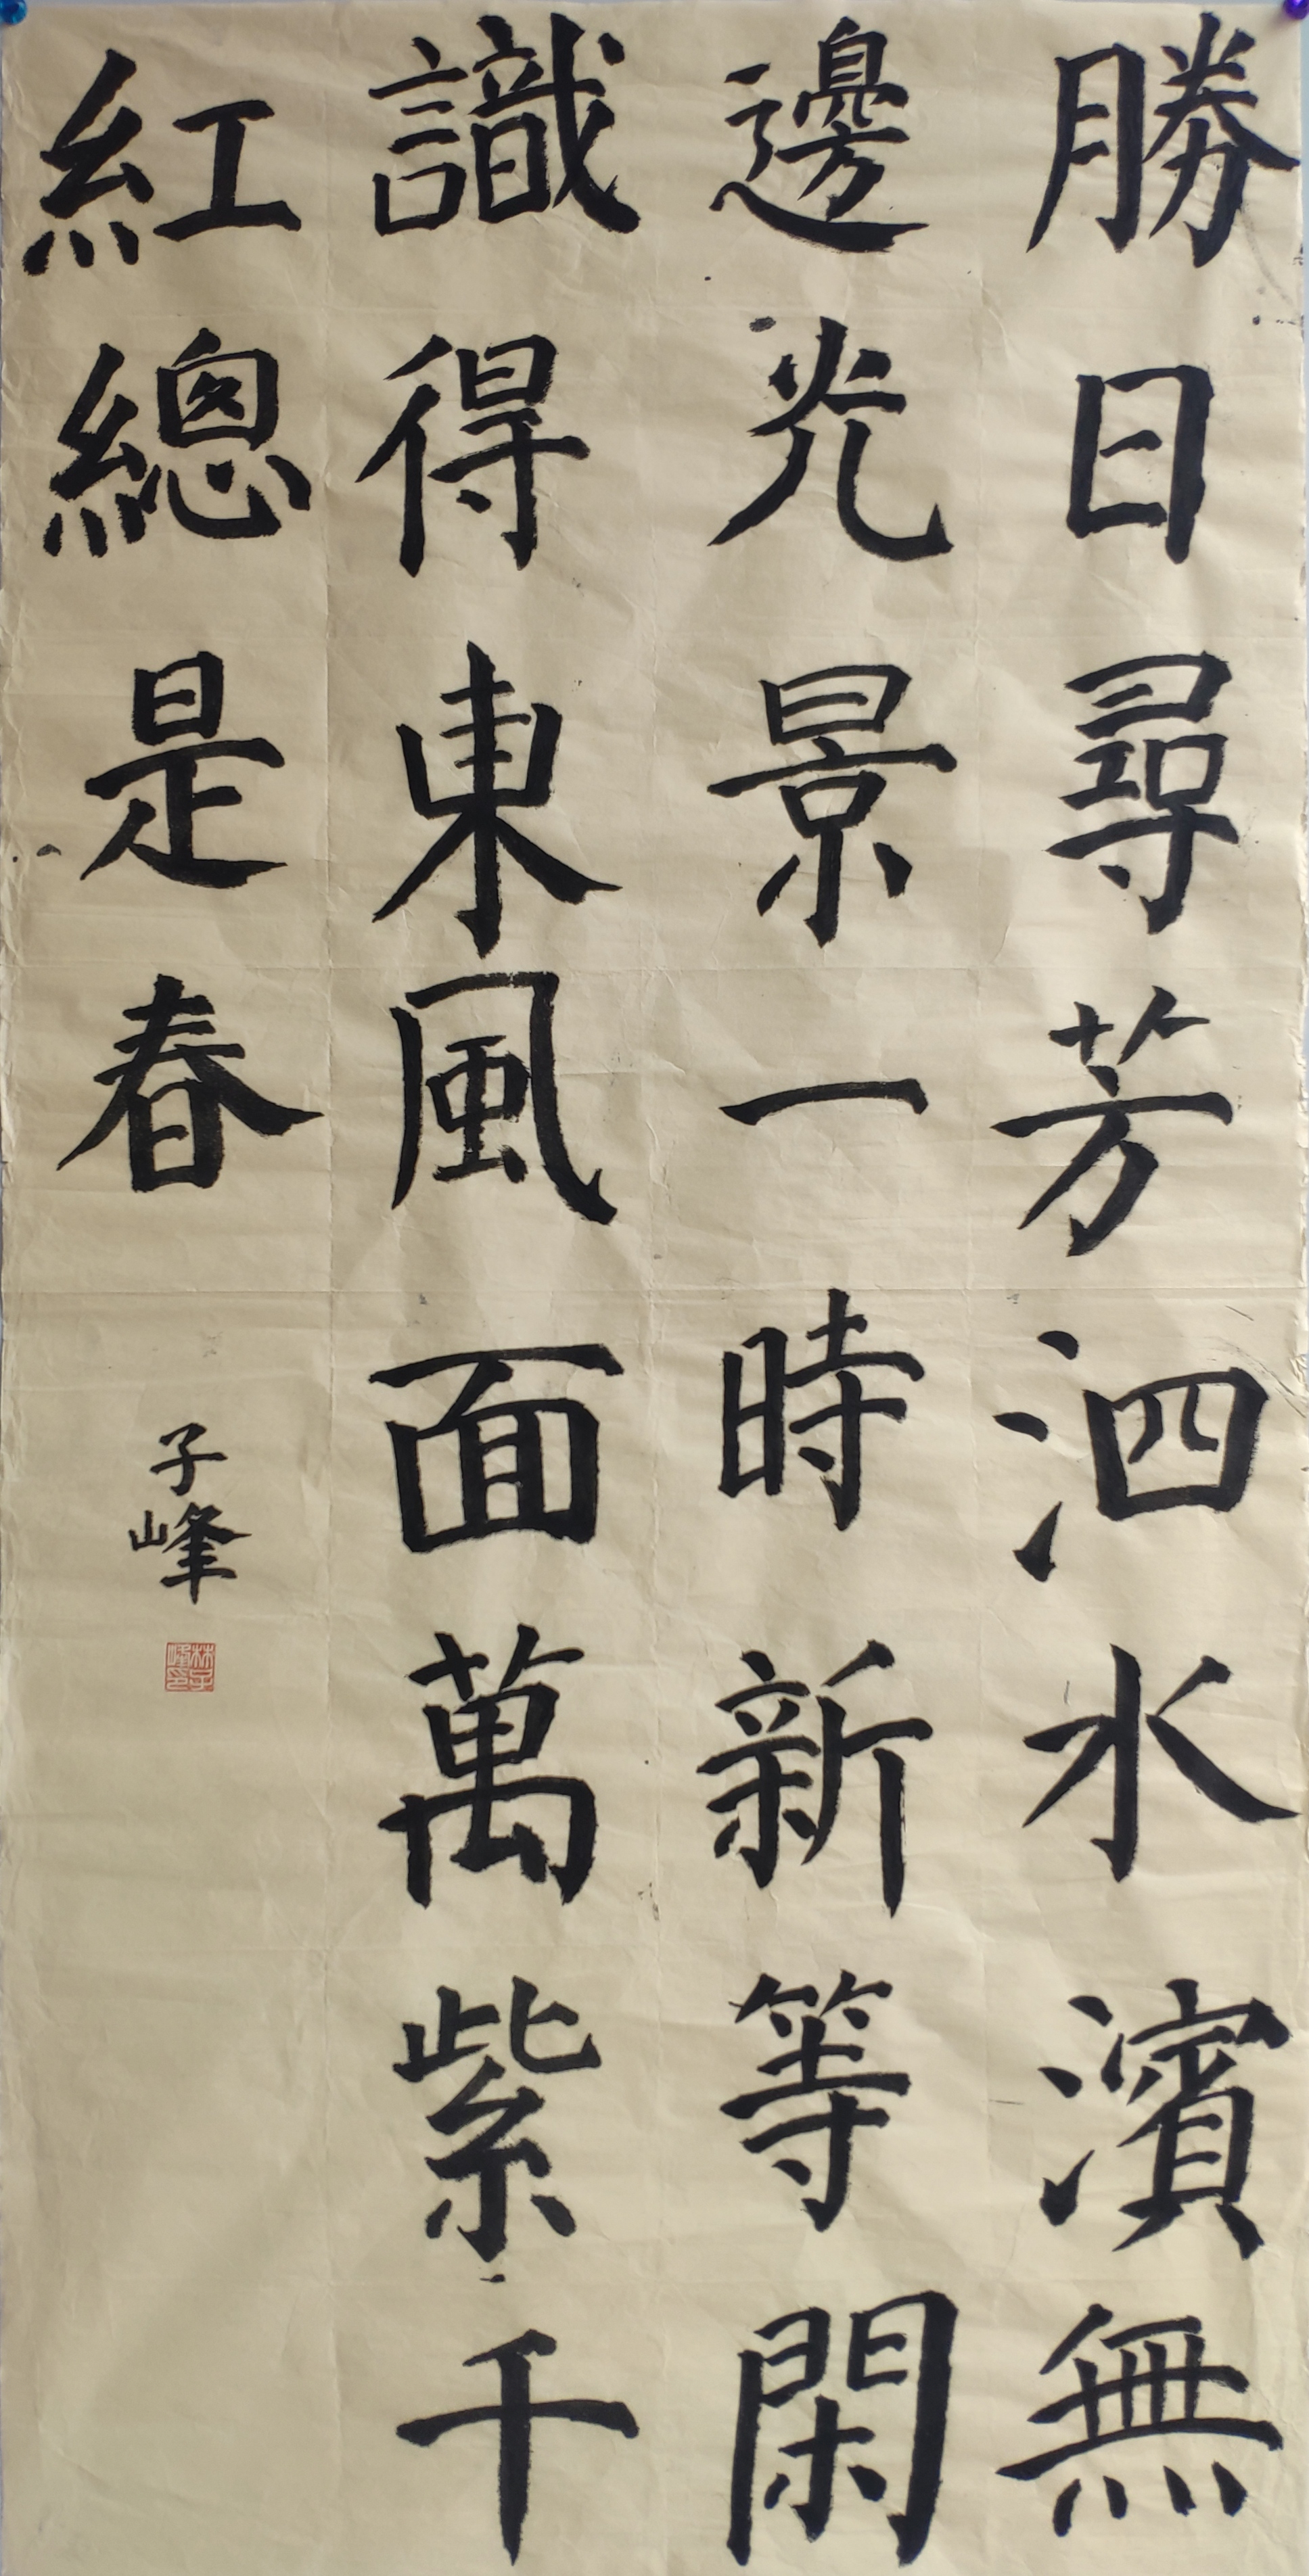 勝日尋芳泗水濱無
邊光景一時新等閑
識得東風面萬紫千
紅總是春
子峰
林子峰印